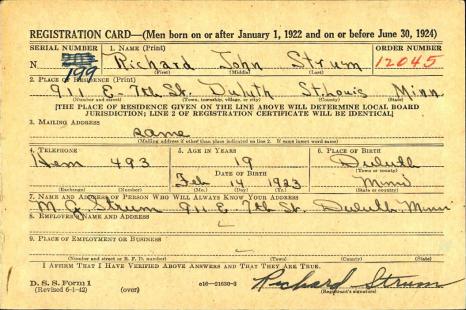 REGISTRATION CARD—(Men born on or after January 1, 1922 and on or before June 30, 1924)
SERIAL NUMBER 1. NAME (Print) ORDER NUMBER
N 199 Richard John Strum 12045
(First) (Middle) (Last)
2. PLACE OF RESIDENCE (Print)
911 E. 7th St. Duluth St. Louis Minn.
(Number and street) (Town, township, village, or city) (County) (State)
[THE PLACE OF RESIDENCE GIVEN ON THE LINE ABOVE WILL DETERMINE LOCAL BOARD
JURISDICTION; LINE 2 OF REGISTRATION CERTIFICATE WILL BE IDENTICAL]
3. MAILING ADDRESS
same
(Mailing address if other than place indicated on line 2. If same insert word same)
4. TELEPHONE 5. AGE IN YEARS 6. PLACE OF BIRTH
Hem 493 19 Duluth
DATE OF BIRTH (Town or county)
Feb 14 1923 Minn
(Exchange) (Number) (Mo.) (Day) (Yr.) (State or country)
7. NAME AND ADDRESS OF PERSON WHO WILL ALWAYS KNOW YOUR ADDRESS
M. G. Strum 911 E. 7th St. Duluth, Minn
8. EMPLOYER'S NAME AND ADDRESS
9. PLACE OF EMPLOYMENT OR BUSINESS
(Number and street or R. F. D. number) (Town) (County) (State)
I AFFIRM THAT I HAVE VERIFIED ABOVE ANSWERS AND THAT THEY ARE TRUE.
D. S. S. Form 1 16—21630-2 Richard Strum
(Revised 6-1-42) (over) (Registrant's signature)